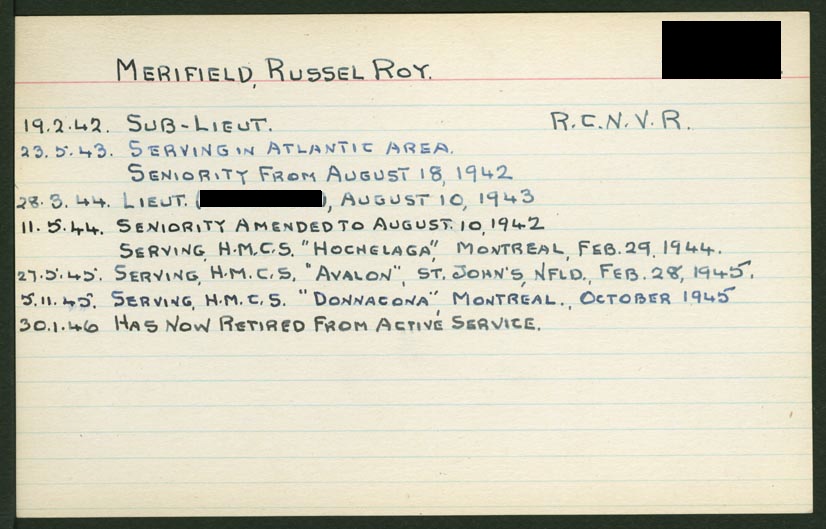 MERIFIELD, RUSSEL ROY.
19.2.42. SUB-LIEUT. R.C.N.V.R.
23.5.43. SERVING IN ATLANTIC AREA.
SENIORITY FROM AUGUST 18, 1942
28.3.44. LIEUT. ( ), AUGUST 10, 1943
11.5.44. SENIORITY AMENDED TO AUGUST 10, 1942
SERVING, H.M.C.S. "HOCHELAGA", MONTREAL, FEB. 29, 1944.
27.5.45. SERVING, H.M.C.S. "AVALON", ST. JOHN'S, NFLD., FEB. 28, 1945.
5.11.45. SERVING, H.M.C.S. "DONNACONA", MONTREAL., OCTOBER 1945
30.1.46 HAS NOW RETIRED FROM ACTIVE SERVICE.